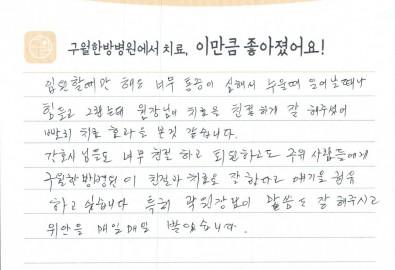 구월한방병원에서 치료, 이만큼 좋아졌어요!
입원할때만 해도 너무 통증이 심해서 누울때 일어날때나
힘들고 그랬는데 원장님이 치료을 친절하게 잘 해주셔서
빨리 치료 효과를 본것 같습니다.
간호사님들도 너무 친절 하고 퇴원하고도 주위 사람들에게
구월한방병원이 친절과 치료을 잘 한다고 얘기을
하고 있습니다 특히 원장님이 말씀도 잘 해주시고
위안을 매일매일 받았습니다.